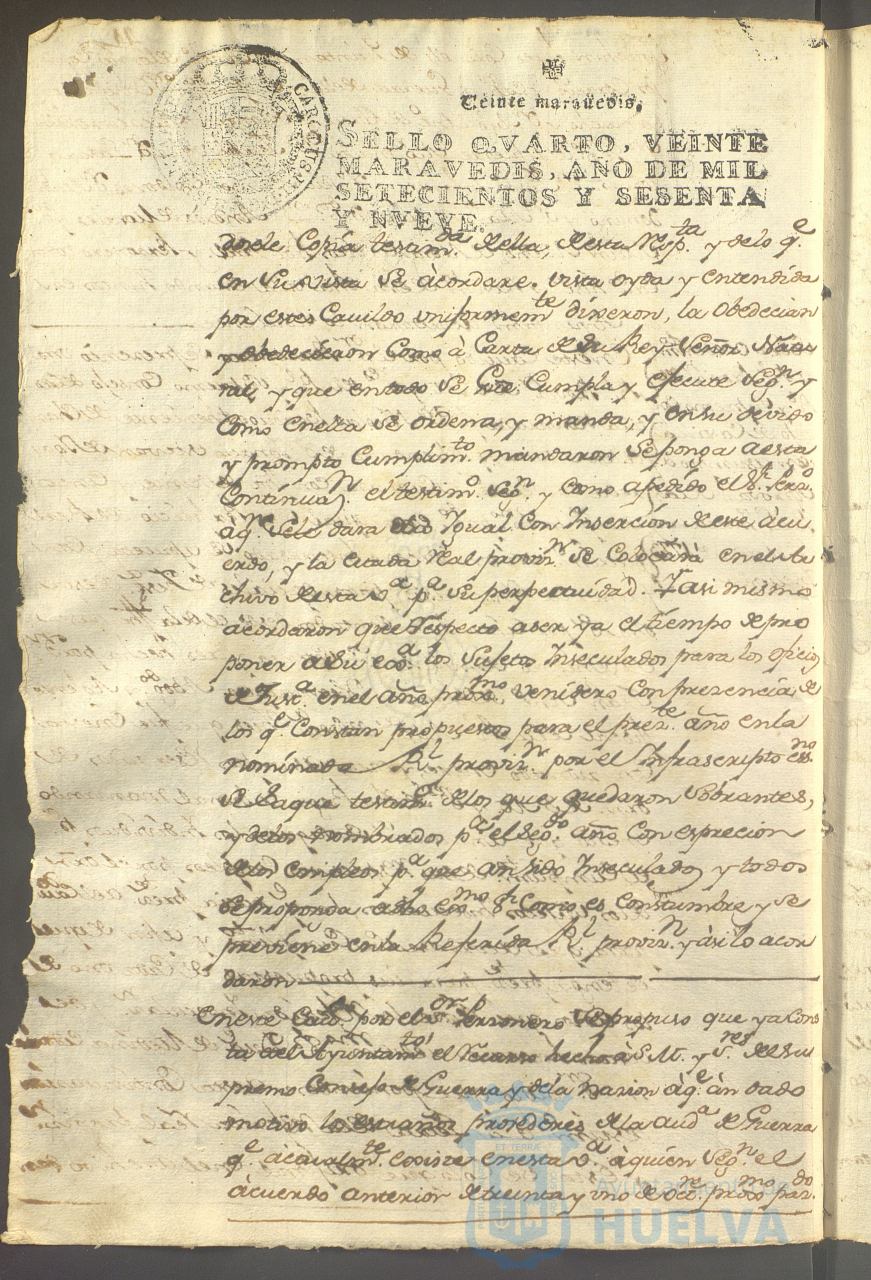 CAROLUS III
Veinte maravedis.
SELLO QVARTO, VEINTE
MARAVEDIS, AÑO DE MIL
SETECIENTOS Y SESENTA
Y NVEVE.
dosele Copia testim.da della, desta Resp.ta y de lo q.e
en su vista se acordare. vista oyda y entendida
por estes Cavildo uniformem.te dixeron, la obedecian
y obedecieron Como à Carta de su Rey Señor Natu
ral, y que en todo se Cumpla y execute seg.n y
Como en ella se ordena, y manda, y en su devido
y prompto Cumplim.to mandaron se ponga a esta
Continua.n el testim.o seg.n y como a pedido el
a q.n se le dara otro Igual Con Inserción de este acu
erdo, y la citada Real provis.n se Colocará en el Ar
chivo desta v.a p.a su perpetuidad. Y asi mismo
acordaron que Respecto a ser ya el tiempo de pro
poner a su ex.a los sujetos Inseculados para los oficios
de Just.a en el año prox.mo venidero Con prezencia de
los q.e Constan propuestos para el prez.te año en la
nominada R.l provis.n por el Infrascripto ess.no
se saque testim.o de los que quedaron sobrantes,
y de los nombrados p.a el seg.do año con esprecion
de los empleos p.a que an sido Inseculados y todos
se proponda a dho ex.mo s.r Como es Constumbre y se
previene en la Referida R.l provis.n y asi lo acor
daron
En este Cav.do por el s.or Personero se propuso que ya Cons
ta a el Ayuntam.to el Recurso hecho à S.M. y s.res de su
premo Consejo de Guerra y de la Marina à q.e àn dado
motivo los estraños prosederes de la aud.a de Guerra
q.e actualm.te existe en esta v.a à quien seg.n el
acuerdo anterior de treinta y uno de oct.re prox.mo pas.do
ET TERRA
Ayuntamiento de
HUELVA